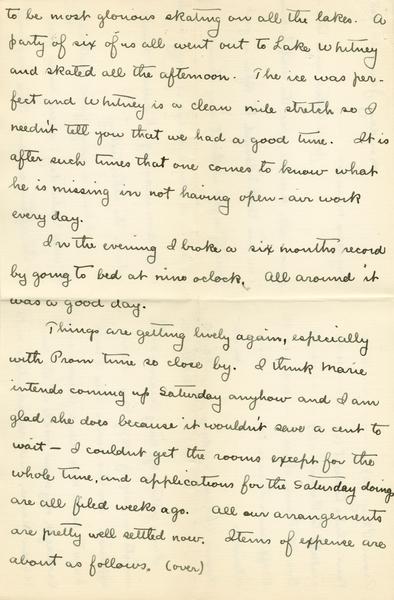 to be most glorious skating on all the lakes. A
party of six of us all went out to Lake Whitney
and skated all the afternoon. The ice was per-
fect and Whitney is a clean mile stretch so I
needn't tell you that we had a good time. It is
after such times that one comes to know what
he is missing in not having open-air work
every day.
In the evening I broke a six months record
by going to bed at nine oclock. All around it
was a good day.
Things are getting lively again, especially
with Prom time so close by. I think Marie
intends coming up Saturday anyhow and I am
glad she does because it wouldn't save a cent to
wait — I couldnt get the rooms except for the
whole time, and applications for the Saturday doings
are all filed weeks ago. All our arrangements
are pretty well settled now. Items of expense are
about as follows. (over)